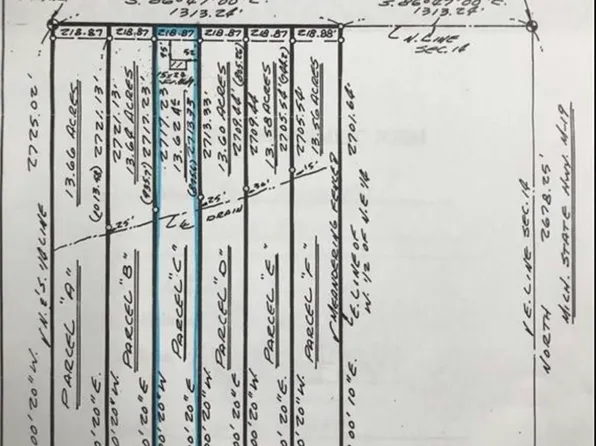 S. 86°47'00"E.
1313.24'
S. 86°47'00"E.
1313.24'
218.87
218.87
218.87
218.87
218.87
218.88'
N. LINE
SEC. 14
2725.02'
13.66 ACRES
2721.13'
2721.13'
13.64 ACRES
2717.23'
2717.23'
13.62 AC
2713.33
2713.33'
13.60 ACRES
2709.44'
2709.44
13.58 ACRES
2705.54
2705.54
13.56 ACRES
2701.64'
25'
25'
30'
15'
DRAIN
PARCEL "A"
PARCEL "B"
PARCEL "C"
PARCEL "D"
PARCEL "E"
PARCEL "F"
MEANDERING FENCE
E. LINE OF
W. 1/2 OF N.E. 1/4
E. LINE SEC. 14
NORTH 2678.25'
MICH. STATE HWY. M-19
00'20"W.
00'20"E.
00'20"W.
00'20"E
00'20"W
00'20"E.
00'20"W.
00'20"E
00'20"W.
00'20"E.
00'20"W.
00'10"E.